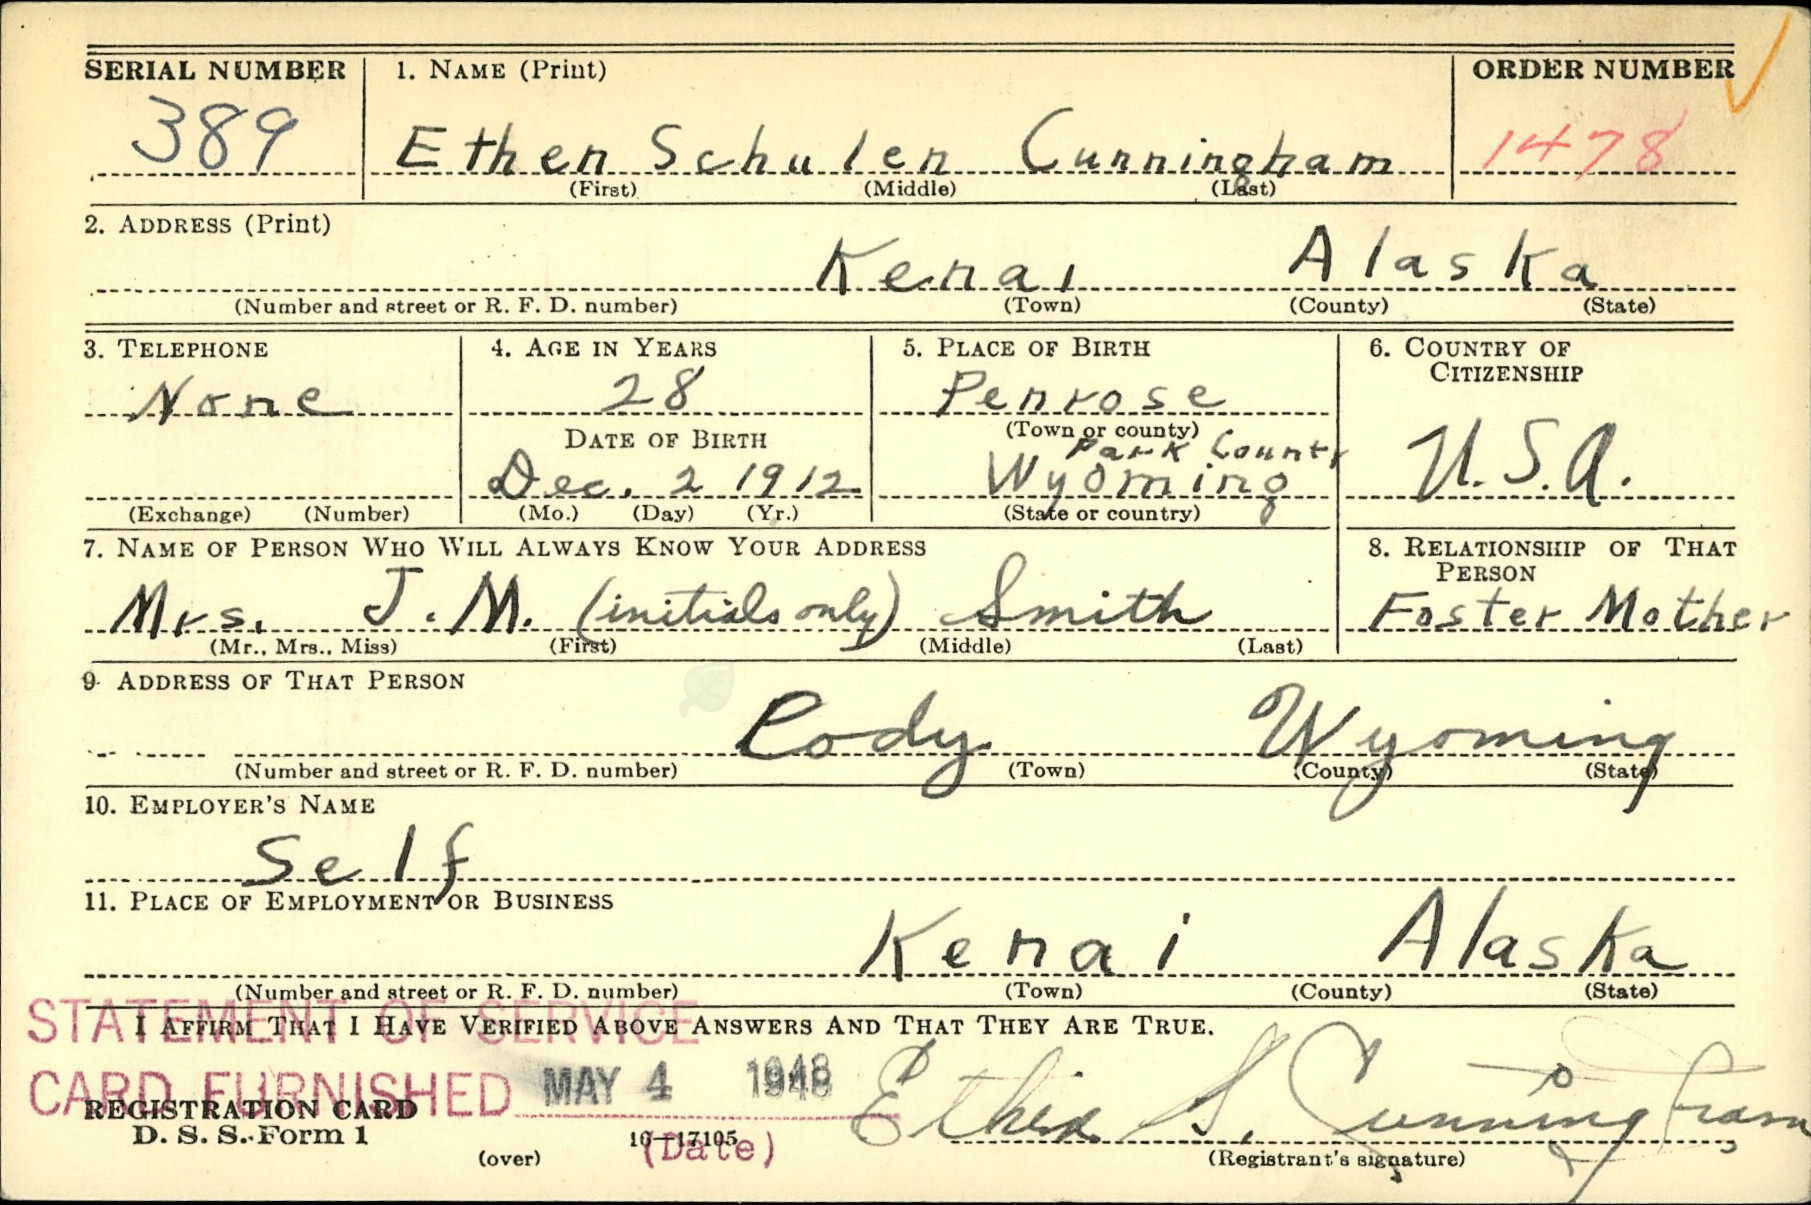 SERIAL NUMBER 1. NAME (Print) ORDER NUMBER
389 Ethen Schulen Cunningham 1478
(First) (Middle) (Last)
2. ADDRESS (Print)
Kenai Alaska
(Number and street or R. F. D. number) (Town) (County) (State)
3. TELEPHONE 4. AGE IN YEARS 5. PLACE OF BIRTH 6. COUNTRY OF
CITIZENSHIP
None 28 Penrose
DATE OF BIRTH (Town or county)
Park County
Dec. 2 1912 Wyoming U.S.A.
(Exchange) (Number) (Mo.) (Day) (Yr.) (State or country)
7. NAME OF PERSON WHO WILL ALWAYS KNOW YOUR ADDRESS 8. RELATIONSHIP OF THAT
PERSON
Mrs. J. M. (initials only) Smith Foster Mother
(Mr., Mrs., Miss) (First) (Middle) (Last)
9. ADDRESS OF THAT PERSON
Cody Wyoming
(Number and street or R. F. D. number) (Town) (County) (State)
10. EMPLOYER'S NAME
Self
11. PLACE OF EMPLOYMENT OR BUSINESS
Kenai Alaska
(Number and street or R. F. D. number) (Town) (County) (State)
STATEMENT OF SERVICE
I AFFIRM THAT I HAVE VERIFIED ABOVE ANSWERS AND THAT THEY ARE TRUE.
CARD FURNISHED MAY 4 1948
REGISTRATION CARD
D. S. S. Form 1 16—17105 S. Cunningham
(over) (Date) (Registrant's signature)